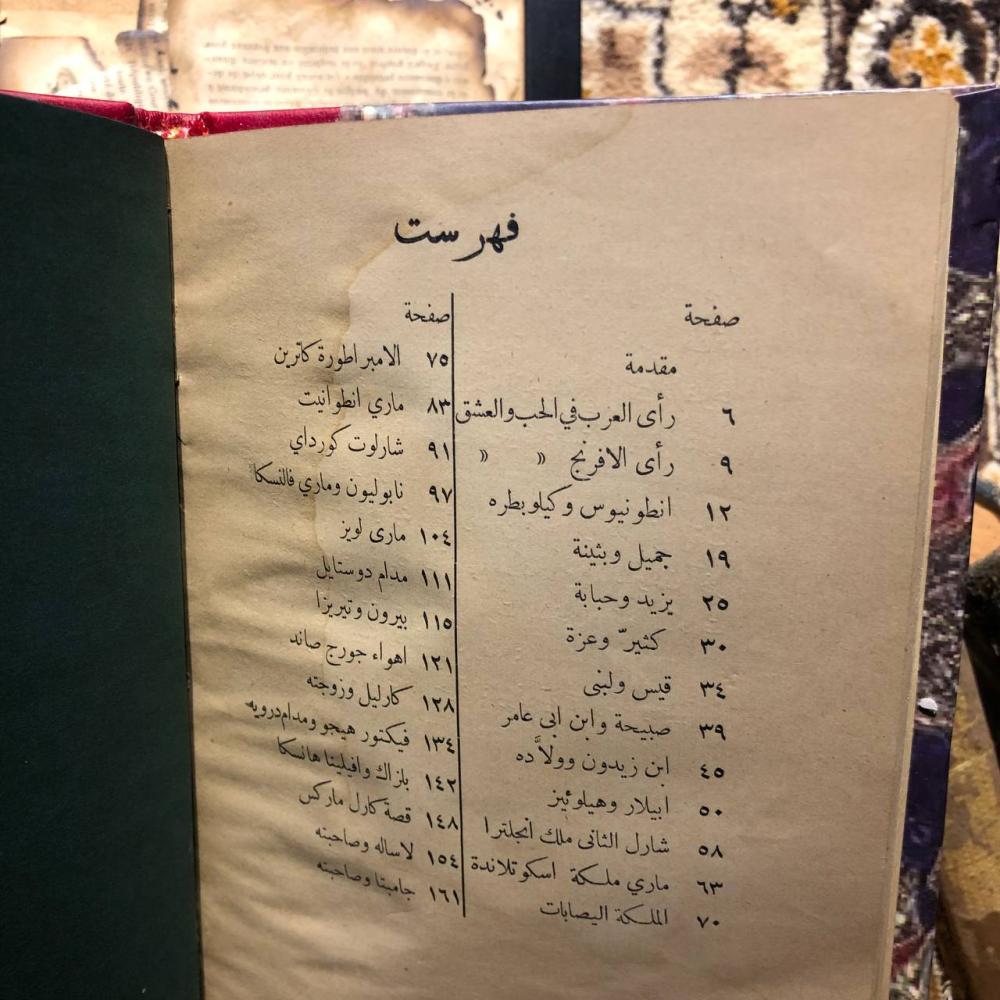 فهرست
صفحة
مقدمة
٦ رأى العرب في الحب والعشق
٩ رأى الافرنج » »
١٢ انطونيوس وكيلوبطره
١٩ جميل وبثينة
٢٥ يزيد وحبابة
٣٠ كثيرّ وعزة
٣٤ قيس ولبنى
٣٩ صبيحة وابن ابى عامر
٤٥ ابن زيدون وولاَّده
٥٠ ابيلار وهيلوئيز
٥٨ شارل الثانى ملك انجلترا
٦٣ ماري ملكة اسكوتلاندة
٧٠ الملكة اليصابات
صفحة
٧٥ الامبراطورة كاترين
٨٣ ماري انطوانيت
٩١ شارلوت كورداي
٩٧ نابوليون وماري فالنسكا
١٠٤ مارى لويز
١١١ مدام دوستايل
١١٥ بيرون وتيريزا
١٢١ اهواء جورج صاند
١٢٨ كارليل وزوجته
١٣٤ فيكتور هيجو ومدام درويه
١٤٢ بلزاك وافيلينا هانسكا
١٤٨ قصة كارل ماركس
١٥٤ لاساله وصاحبته
١٦١ جامبتا وصاحبته